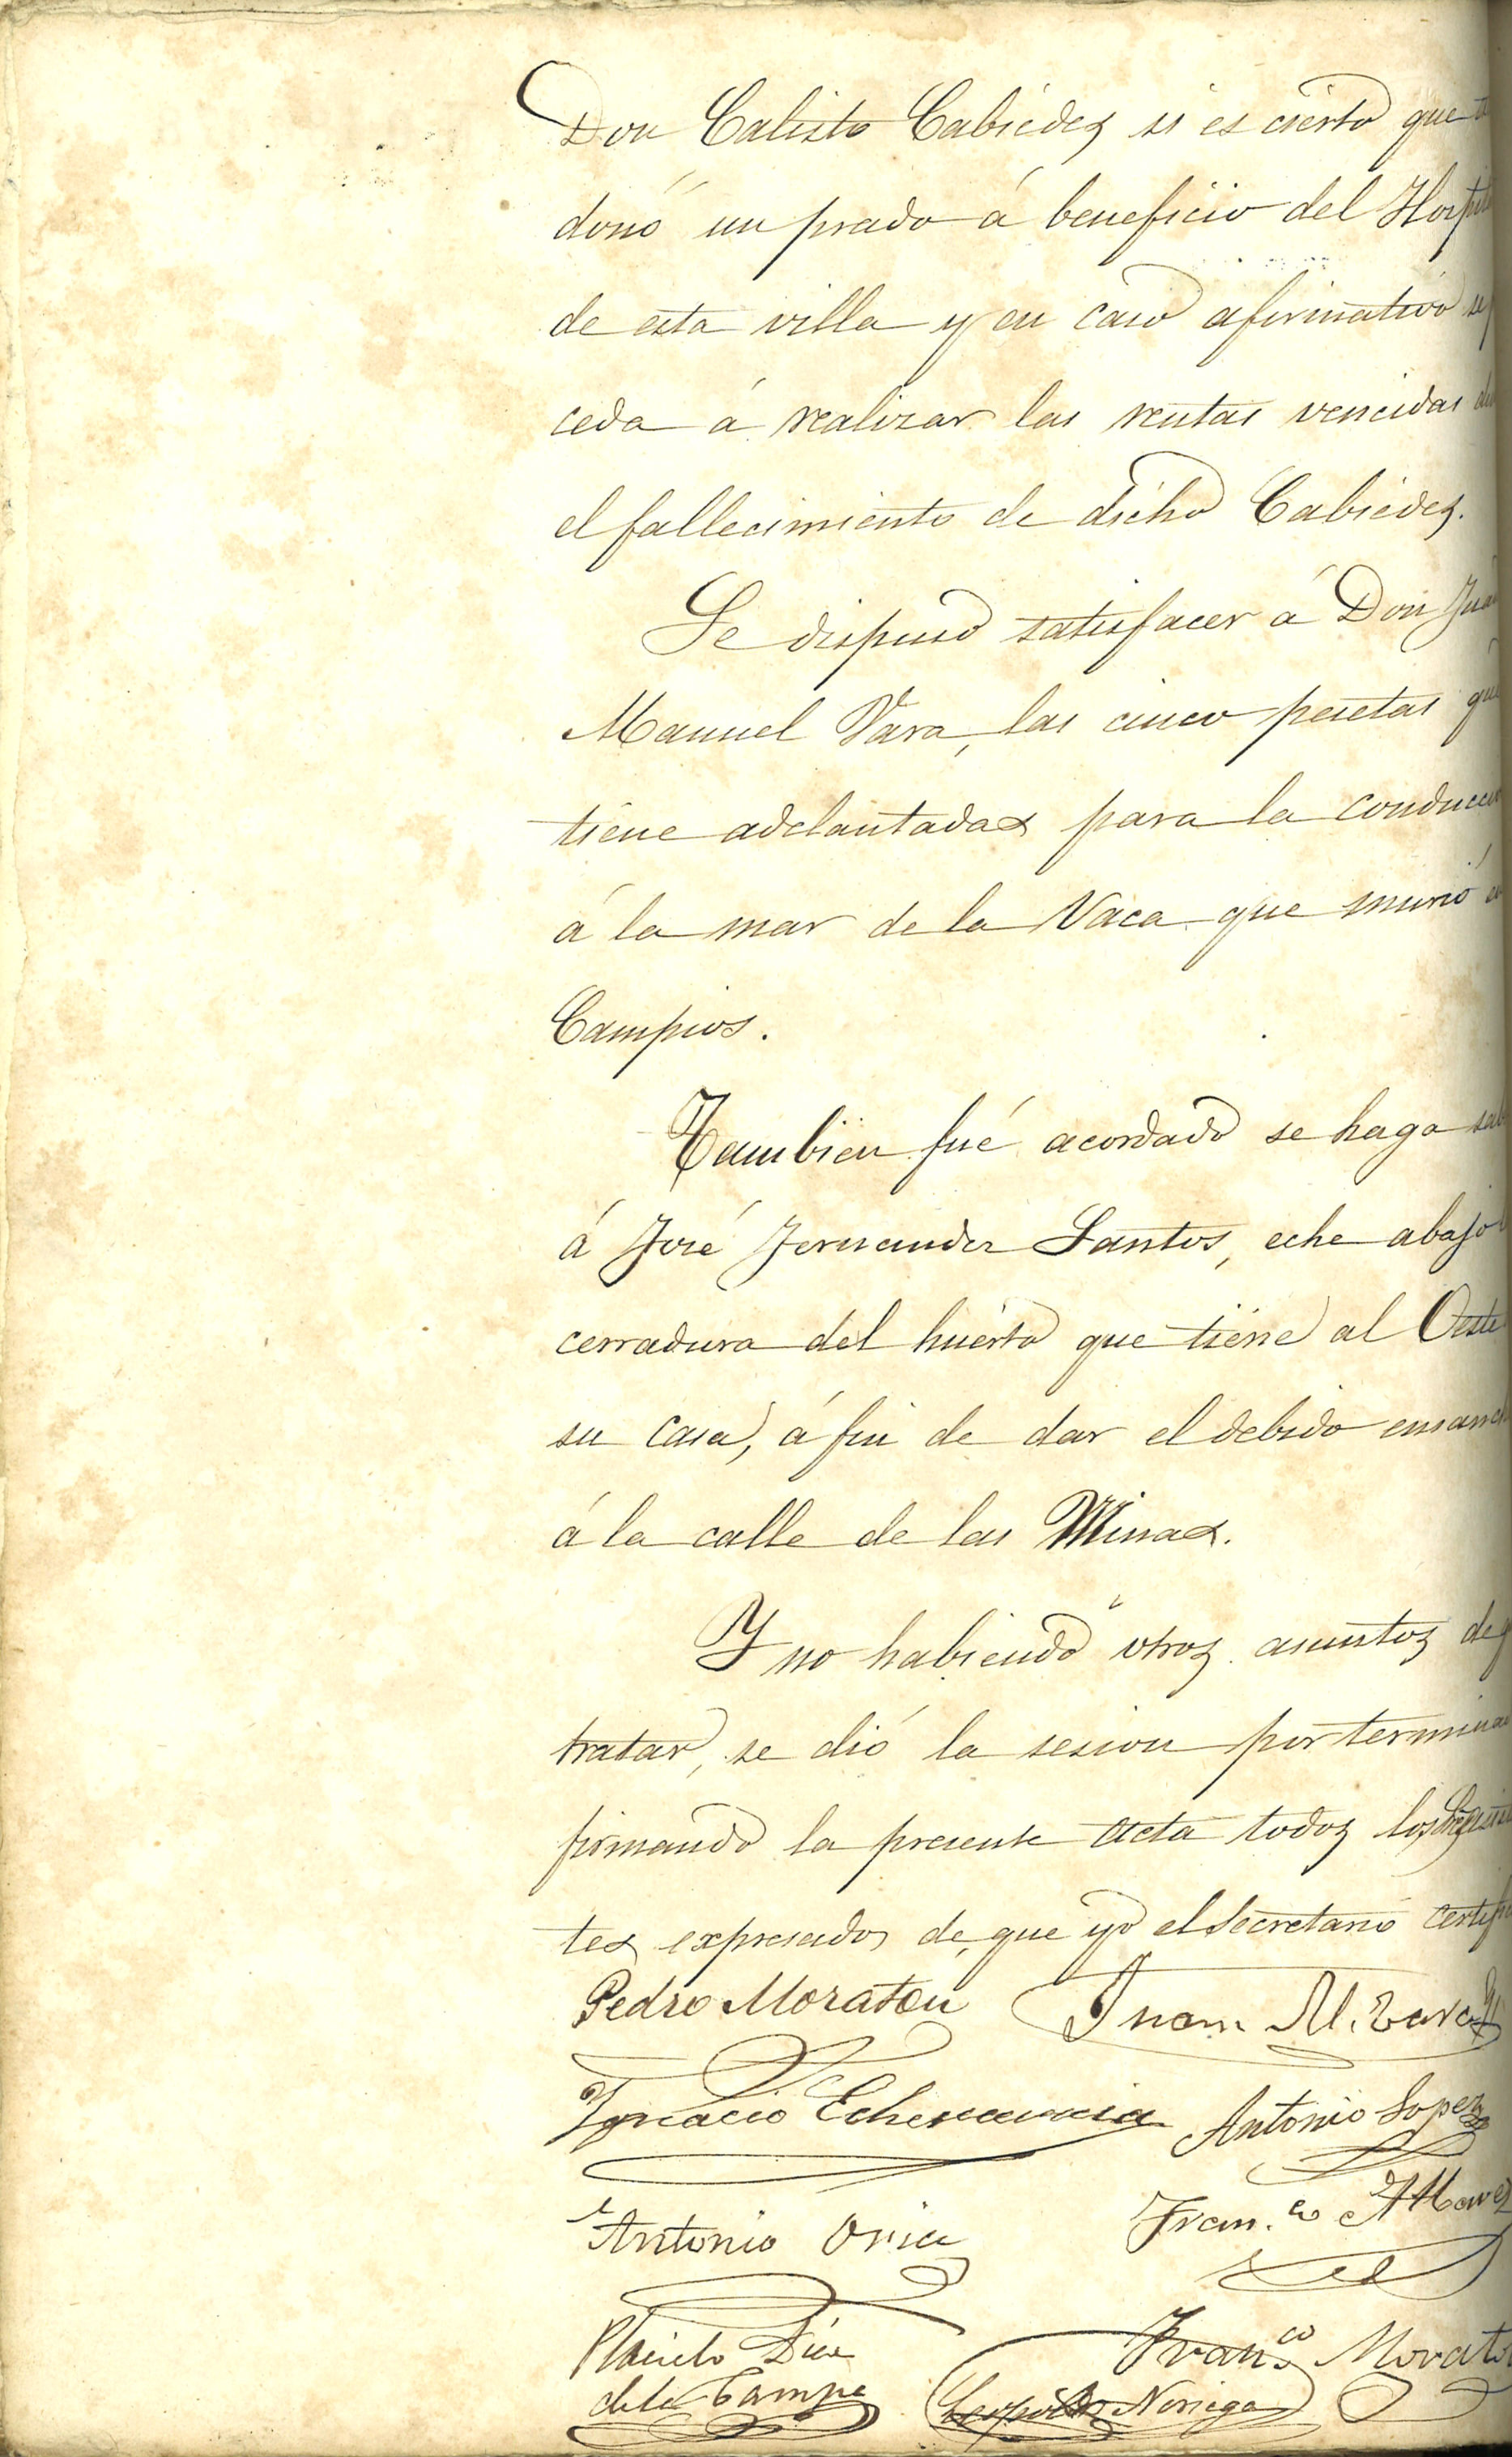 Don Calisto Cabiédez si es cierto que
donó un prado á beneficio del Hospit
de esta villa y en caso afirmativo se
ceda á realizar las rentas vencidas de
el fallecimiento de dicho Cabiédez.
Se dispuso satisfacer á Don Jua
Manuel Vara, las cinco pesetas que
tiene adelantadas para la conducci
á la mar de la Vaca que murió en
Campios.
Tambien fué acordado se haga sab
á José Fernandez Santos, eche abajo
cerradura del huerto que tiene al Oeste
su casa, á fin de dar el debido ensanch
á la calle de las Minas.
Y no habiendo otros asuntos de q
tratar, se dió la sesion por termina
firmando la presente acta todos los
tes expresados de que yo el Secretario certifi
Pedro Moraton Juan M. Vara
Ignacio Echevarria Antonio Lopez
Antonio Oria Fran.co
Placido Diaz Fran.co Morato
de la Campa Leopoldo Noriega